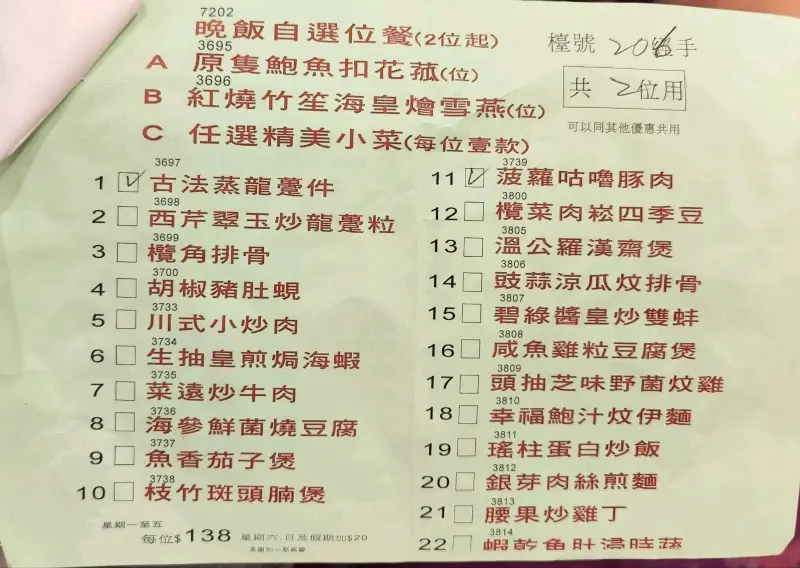 7202
晚飯自選位餐(2位起)
檯號 206 經手
3695
A 原隻鮑魚扣花菰(位)
共 2位用
3696
B 紅燒竹笙海皇燴雪燕(位)
可以同其他優惠共用
C 任選精美小菜(每位壹款)
3697
1 古法蒸龍躉件
3698
2 西芹翠玉炒龍躉粒
3699
3 欖角排骨
3700
4 胡椒豬肚蜆
3733
5 川式小炒肉
3734
6 生抽皇煎焗海蝦
3735
7 菜遠炒牛肉
3736
8 海參鮮菌燒豆腐
3737
9 魚香茄子煲
3738
10 枝竹斑頭腩煲
3739
11 菠蘿咕嚕豚肉
3800
12 欖菜肉崧四季豆
3805
13 溫公羅漢齋煲
3806
14 豉蒜涼瓜炆排骨
3807
15 碧綠醬皇炒雙蚌
3808
16 咸魚雞粒豆腐煲
3809
17 頭抽芝味野菌炆雞
3810
18 幸福鮑汁炆伊麵
3811
19 瑤柱蛋白炒飯
3812
20 銀芽肉絲煎麵
3813
21 腰果炒雞丁
3814
22 蝦乾魚肚浸時蔬
星期一至五
每位$138 星期六,日及假期加$20
另謝加一服務費